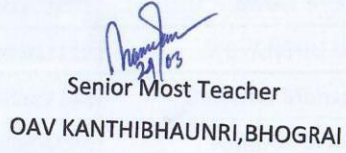 29/03
Senior Most Teacher
OAV KANTHIBHAUNRI,BHOGRAI